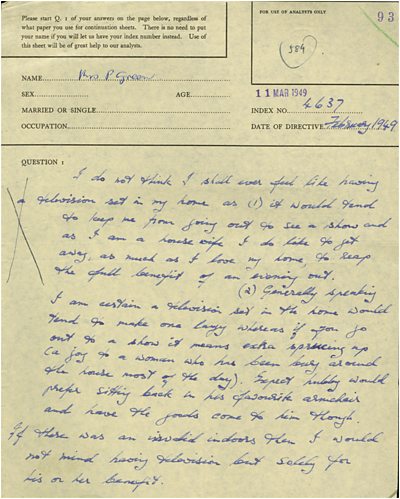 Please start Q. 1 of your answers on the page below, regardless of
what paper you use for continuation sheets. There is no need to put
your name if you will let us have your index number instead. Use of
this sheet will be of great help to our analysts.
FOR USE OF ANALYSTS ONLY
93
584
NAME Mrs P Green
SEX AGE
MARRIED OR SINGLE
OCCUPATION
11 MAR 1949
INDEX NO. 4637
DATE OF DIRECTIVE February 1949
QUESTION 1
I do not think I shall ever feel like having
a television set in my home as (1) it would tend
to keep me from going out to see a show and
as I am a housewife I do like to get
away, as much as I love my home, to reap
the full benefit of an evening out.
(2) Generally speaking
I am certain a television set in the home would
tend to make one lazy whereas if you go
out to a show it means extra sprucing up
(a joy to a woman who has been busy around
the house most of the day). Expect hubby would
prefer sitting back in his favourite armchair
and have the goods come to him though.
If there was an invalid indoors then I would
not mind having television but solely for
his or her benefit.